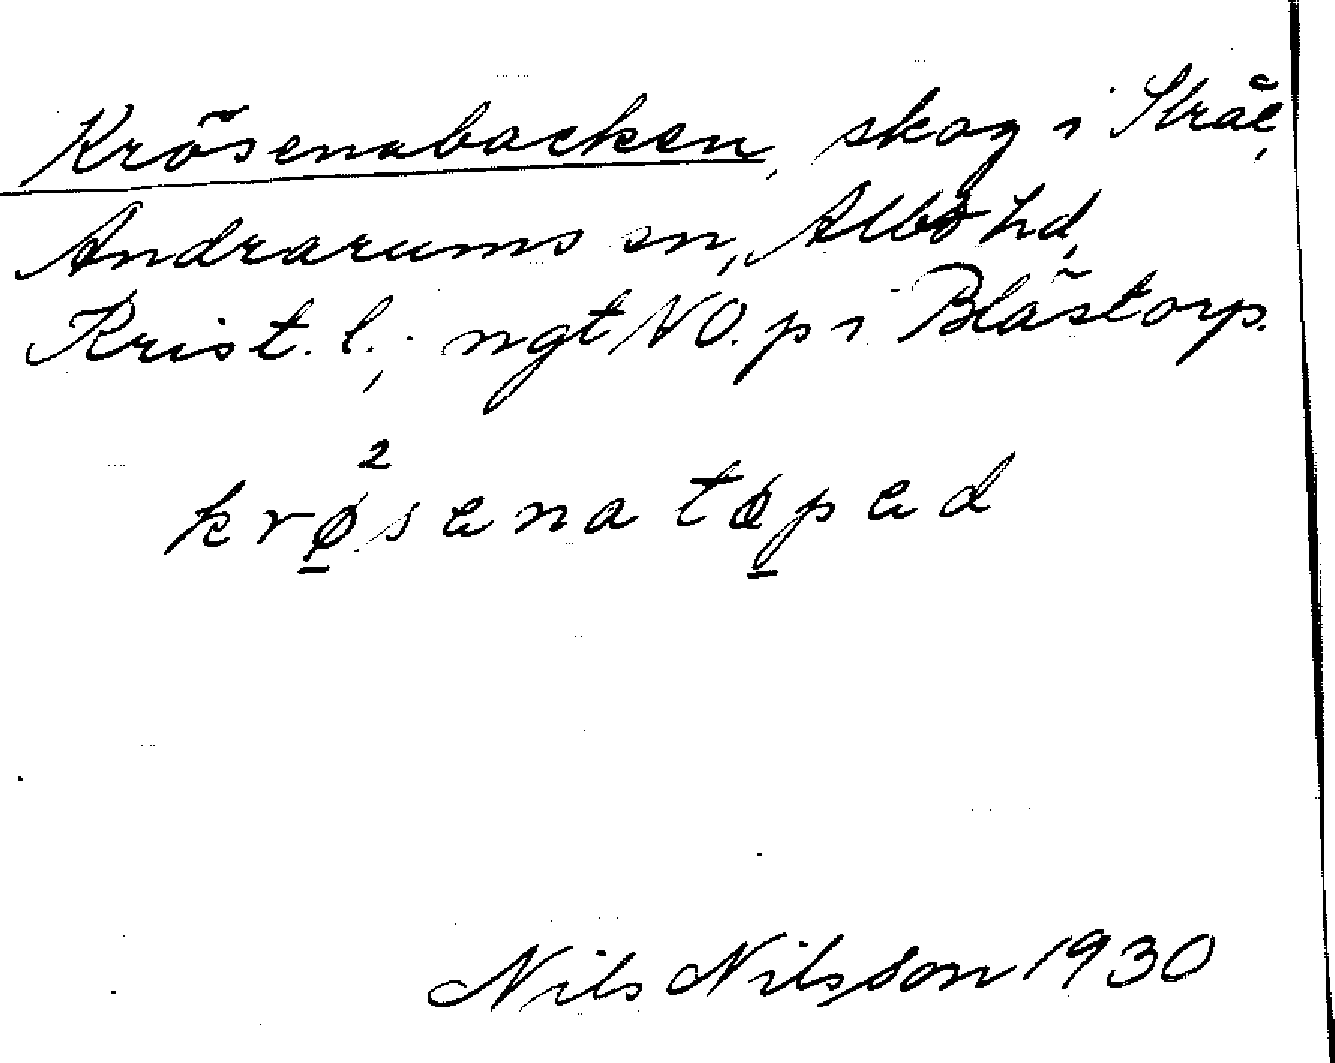 Krösenabacken, skog i Stråe,
Andrarums sn, Albo hd,
Krist. l., ngt NO. p i Blåstorp.
2
krø̱sena tø̱ped
Nils Nilsson 1930